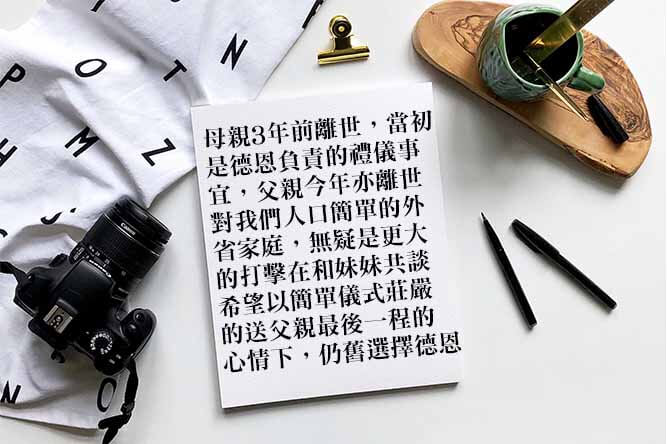 母親3年前離世，當初
是德恩負責的禮儀事
宜，父親今年亦離世
對我們人口簡單的外
省家庭，無疑是更大
的打擊在和妹妹共談
希望以簡單儀式莊嚴
的送父親最後一程的
心情下，仍舊選擇德恩
P O T N
S H M Z
Canon